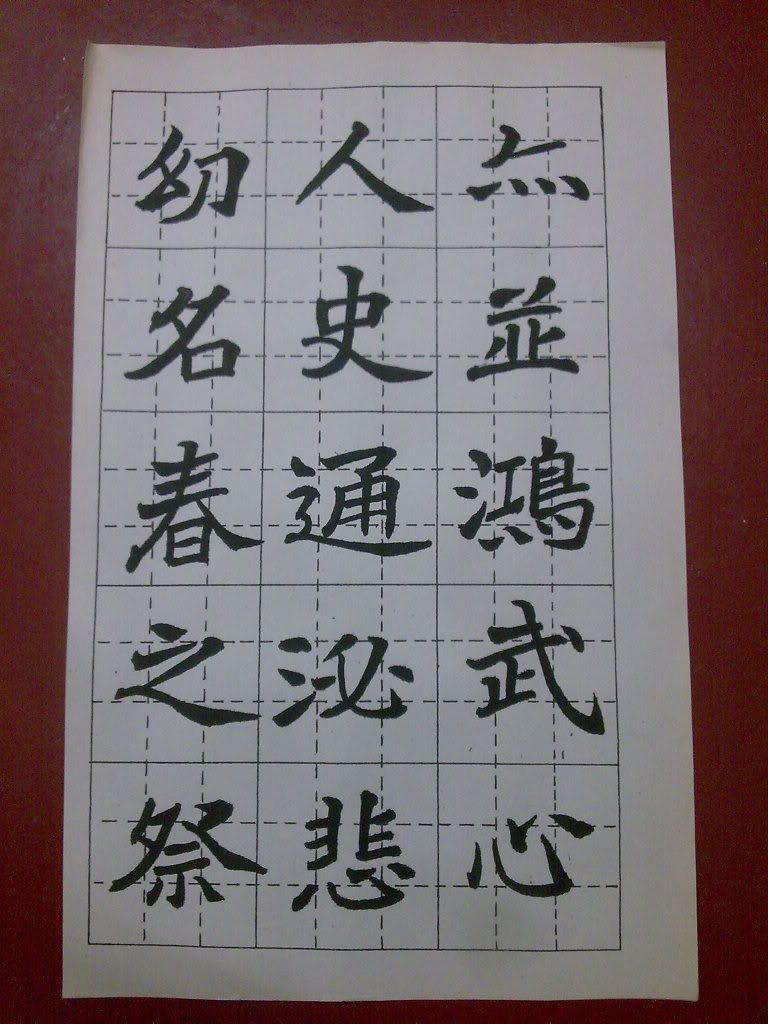 並鴻武心
人史通泌悲
幼名春之祭